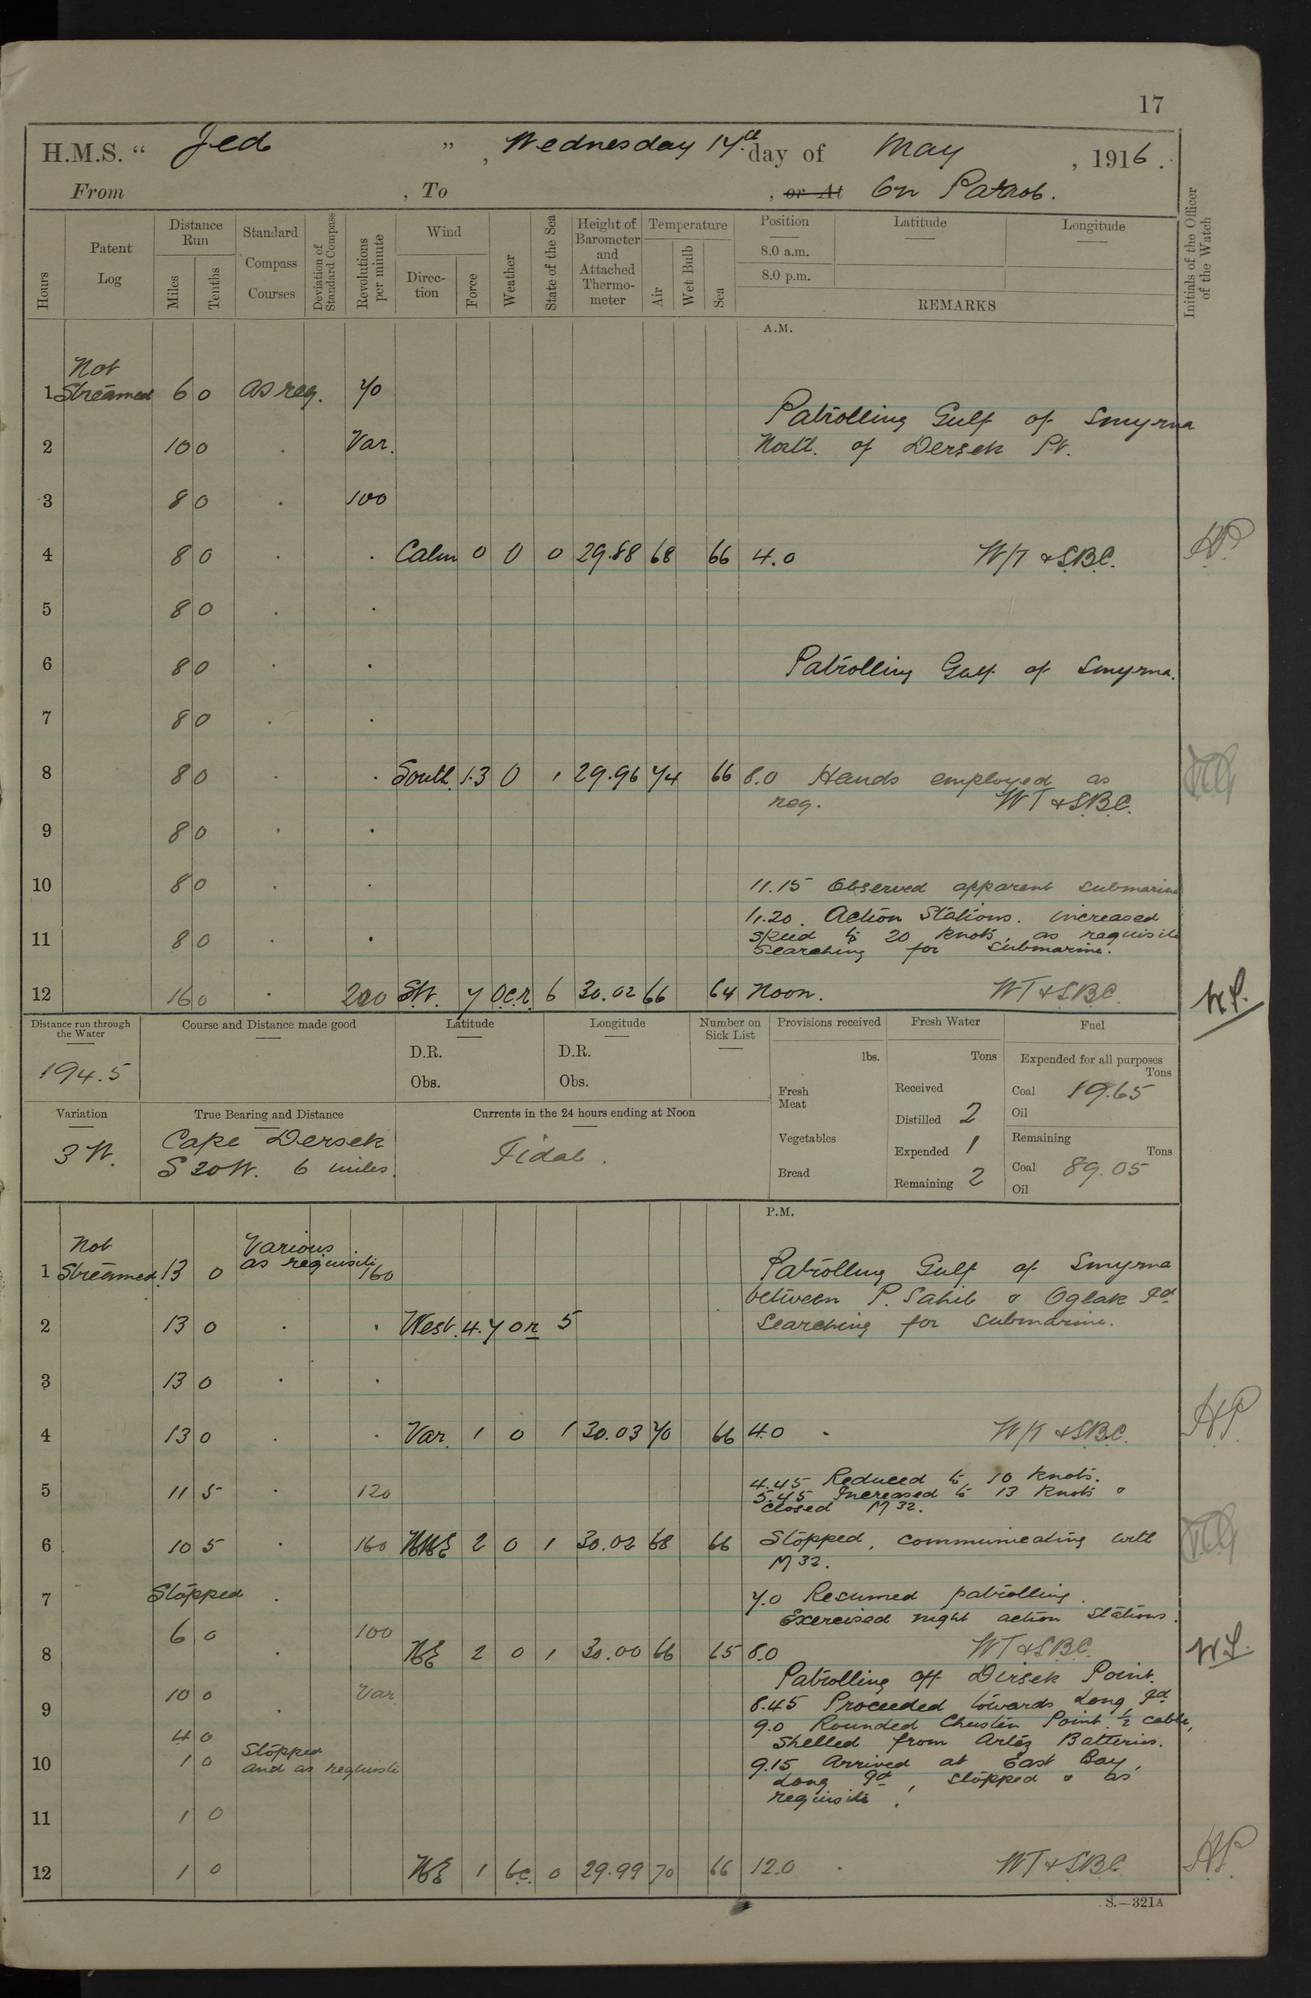 17
H.M.S. “ Jed ” , Wednesday 17th day of May , 1916 .
From , To , or At On Patrol.
Hours
Patent Log
Distance Run
Miles
Tenths
Standard Compass Courses
Deviation of Standard Compass
Revolutions per minute
Wind
Direction
Force
Weather
State of the Sea
Height of Barometer and Attached Thermometer
Temperature
Air
Wet Bulb
Sea
Position
8.0 a.m.
8.0 p.m.
Latitude
Longitude
REMARKS
Initials of the Officer of the Watch
A.M.
Not
1 Streamed 6 0 as req. 70
Patrolling Gulf of Smyrna
2 10 0 . Var. North. of Dersek Pt.
3 8 0 . 100
4 8 0 . . Calm 0 0 0 29.88 68 66 4.0 W/T & S.B.C. HP
5 8 0 . .
6 8 0 . . Patrolling Gulf of Smyrna.
7 8 0 . .
8 8 0 . . South 1.3 0 1 29.96 74 66 8.0 Hands employed as
req. WT & S.B.C.
9 8 0 . .
10 8 0 . . 11.15 Observed apparent submarine
11.20. Action Stations. increased
11 8 0 . . speed to 20 knots, as requisite
searching for submarine.
12 16 0 . 200 S.W. 7 o.c.r. 6 30.02 66 64 Noon. WT & S.B.C. W.S.
Distance run through the Water
194.5
Course and Distance made good
Latitude
D.R.
Obs.
Longitude
D.R.
Obs.
Number on Sick List
Provisions received
lbs.
Fresh Meat
Vegetables
Bread
Fresh Water
Tons
Received
Distilled 2
Expended 1
Remaining 2
Fuel
Expended for all purposes
Tons
Coal 19.65
Oil
Remaining
Tons
Coal 89.05
Oil
Variation
3 W.
True Bearing and Distance
Cape Dersek
S 20 W. 6 miles.
Currents in the 24 hours ending at Noon
Tidal.
P.M.
Not Various
1 Streamed. 13 0 as requisite 160 Patrolling Gulf of Smyrna
between P. Sahib & Oglak Id
2 13 0 . . West. 4.7 or 5 searching for submarine.
3 13 0 . .
4 13 0 . . Var. 1 0 1 30.03 70 66 4.0 . W/T & S.B.C. HP
4.45 Reduced to 10 knots.
5 11 5 . 120 5.45 Increased to 13 knots &
closed M 32.
6 10 5 . 160 NNE 2 0 1 30.02 68 66 Stopped, communicating with
M 32.
7 Stopped . 7.0 Resumed patrolling.
Exercised night action stations.
6 0 100
8 . NE 2 0 1 30.00 66 65 8.0 WT & S.B.C. W.S.
Patrolling off Dersek Point.
10 0 Var. 8.45 Proceeded towards Long Id
9 . 9.0 Rounded Chustan Point ½ cable,
4 0 Stopped shelled from Artez Batteries.
10 1 0 and as requisite 9.15 Arrived at East Bay,
Long Id, stopped & as
requisite.
11 1 0
12 1 0 NE 1 b.c. 0 29.99 70 66 12.0 . WT & S.B.C. HP
S.—321A